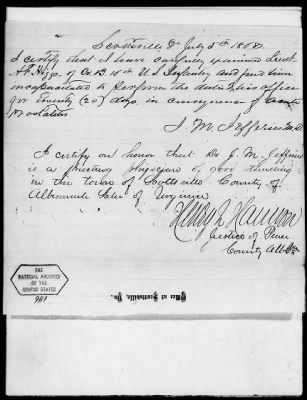 Scottsville Va July 5th 1868
I certify that I have carefully examined Lieut
of Co. B. 10th U S Infantry and find him
incapacitated to perform the duties of his office
for twenty (20) days in consequence of

J. M. Jefferies M.D.
I certify on honor that Dr J. M. Jefferies
is a practicing physician of good standing
in the town of Scottsville County of
Albemarle State of Virginia
Henry
Justice of Peace
County
THE
NATIONAL ARCHIVES
OF THE
UNITED STATES
at Scottsville, Va.